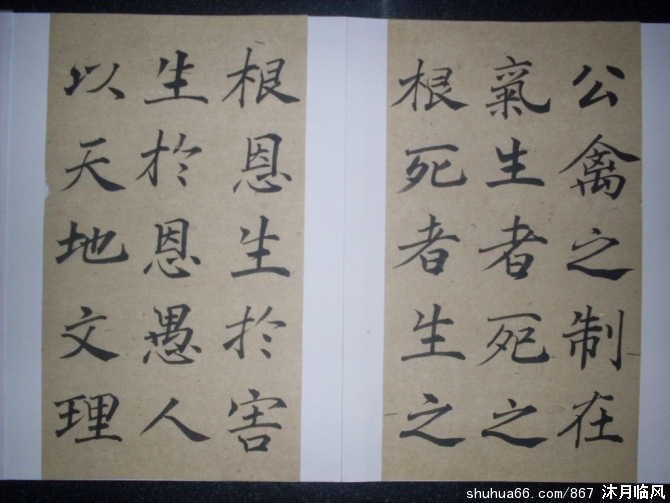 公禽之制在
氣生者死之
根死者生之
根恩生於害
生於恩愚人
以天地文理
shuhua66.com/867 沐月临风